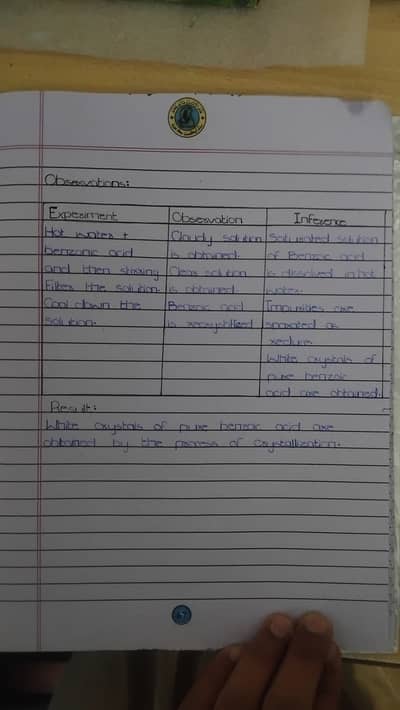 Observations:
Experiment Observation Inference
Hot water + Cloudy solution Saturated solution
benzonic acid is obtained. of Benzoic acid
and then stirring Clear solution is dissolved in hot
Filter the solution. is obtained. water.
Cool down the Benzoic acid Impurities are
solution. is recrystallized separated as
residue.
White crystals of
pure benzoic
acid are obtained.
Result:
White crystals of pure benzoic acid are
obtained by the process of Crystallization.